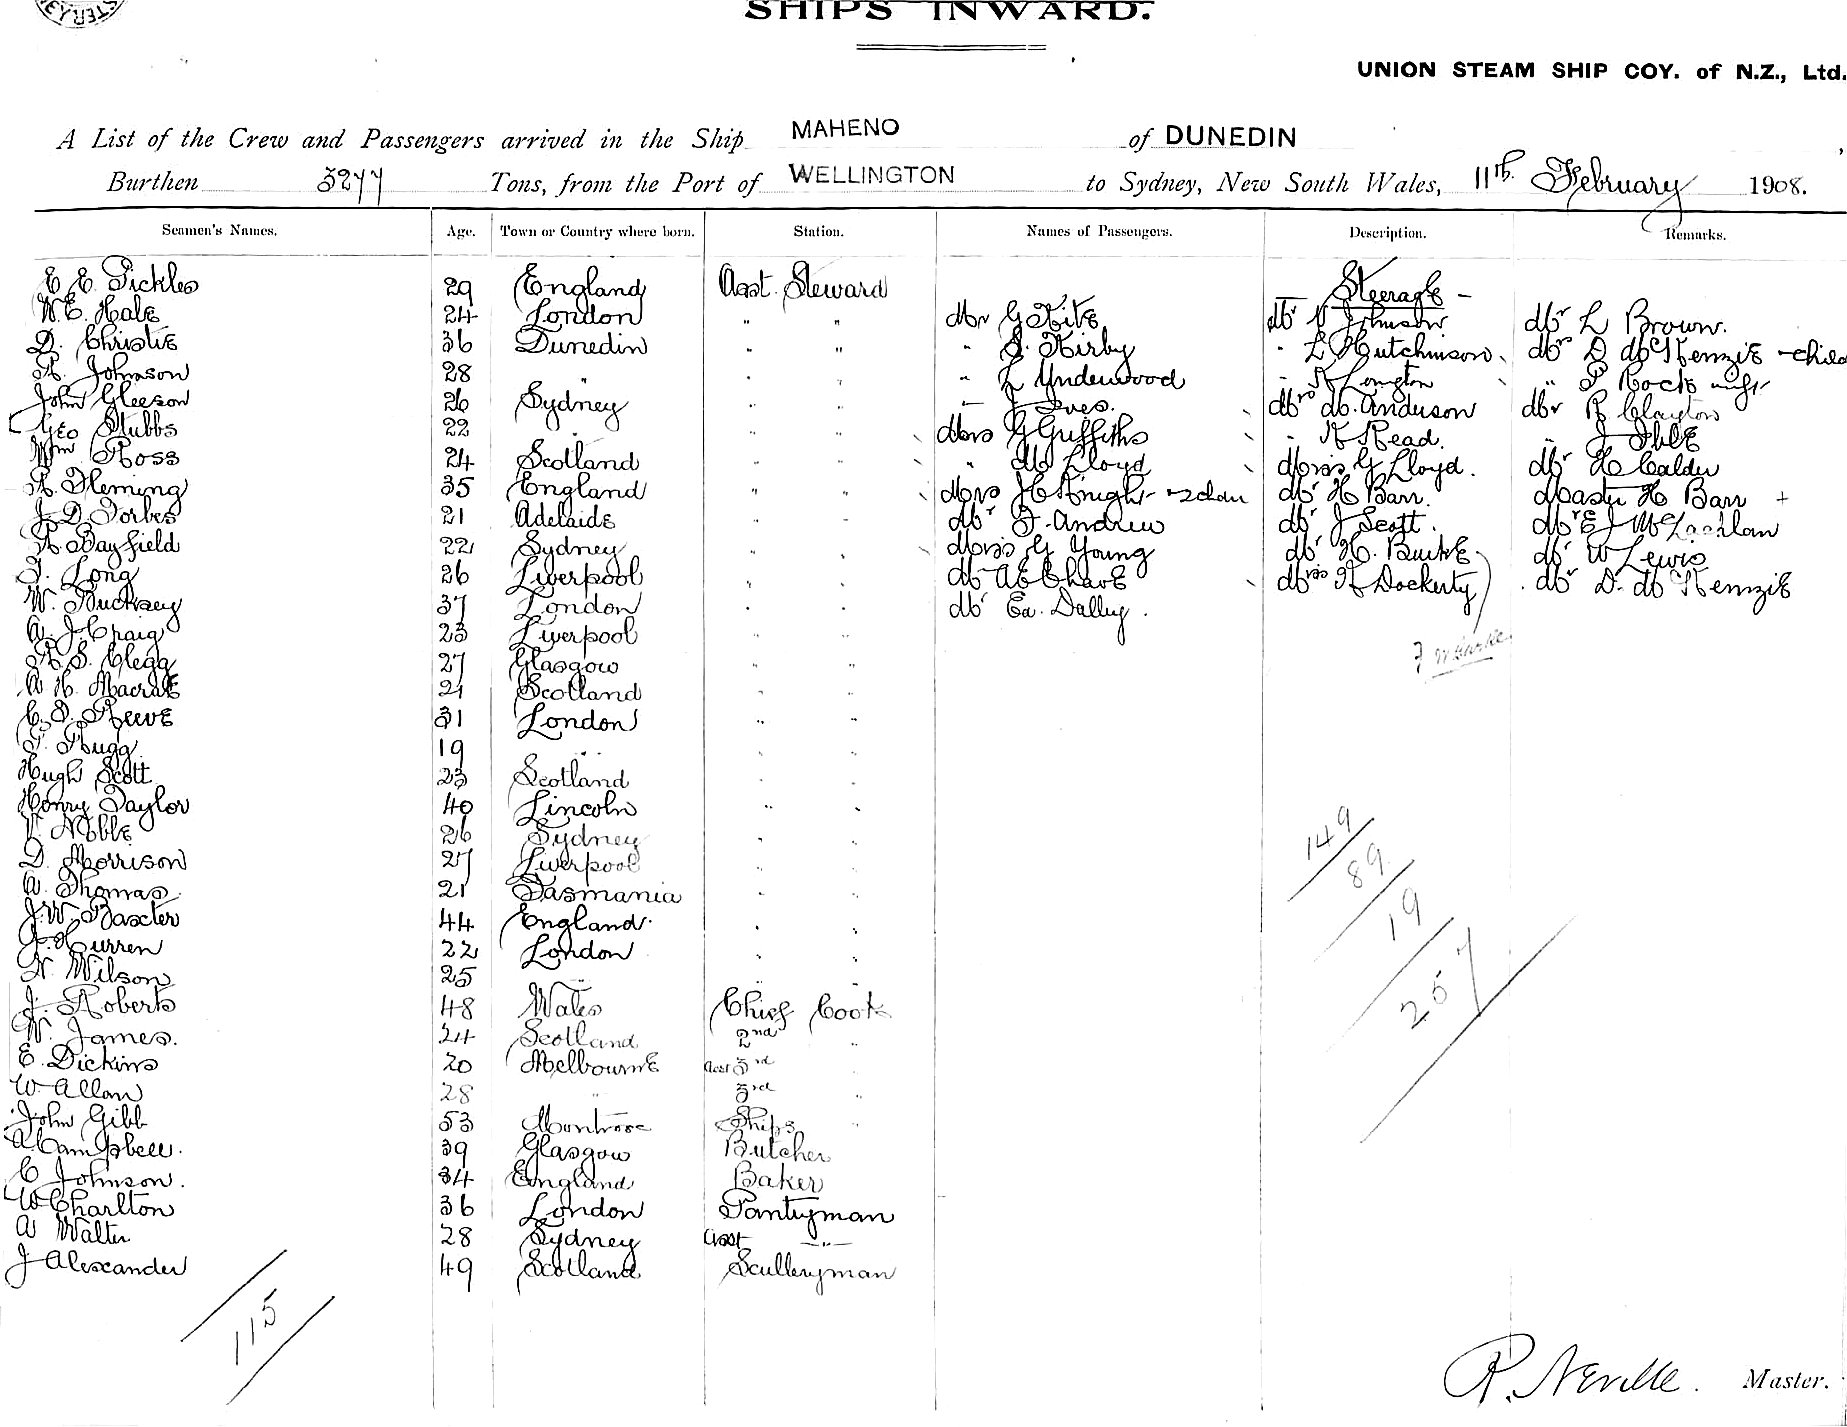 SHIPS INWARD.
UNION STEAM SHIP COY. of N.Z., Ltd.
A List of the Crew and Passengers arrived in the Ship MAHENO of DUNEDIN
Burthen 3277 Tons, from the Port of WELLINGTON to Sydney, New South Wales, 11th February 1908.
Seamen's Names. Age. Town or Country where born. Station. Names of Passengers. Description. Remarks.
E E. Pickles 29 England Asst. Steward — Steerage —
W. E. Hale 24 London " " Mr G Kite Mr Johnson Mr L Brown.
D. Christie 36 Dunedin " " " Kirby " L Hutchinson Mr D McKenzie - child
A. Johnson 28 " " " " L Underwood " A Longton " P Rock
John Gleeson 26 Sydney " " " J Ives. Mrs M. Anderson Mr R Clayton
Geo Stubbs 22 " " " Mrs G Griffiths " K Read. " J
Wm Ross 24 Scotland " " " M Lloyd Miss G Lloyd. Mr H Calder
A. Fleming 35 England " " Mrs H Knight Mr H Barr. Master H Barr +
J. D. Forbes 21 Adelaide " " Mr F. Andrew Mr J Scott. E J McLachlan
A Bayfield 22 Sydney " " Miss G Young Mr H. Burke Mr W Lewis
T. Long 26 Liverpool " " Mr A E Chave Mrs A Dockerty Mr D. McKenzie
W. Bucksey 37 London " " Mr Ed. Dally.
A. J Craig 23 Liverpool " "
A. S. Clegg 27 Glasgow " "
A H. Macrae 21 Scotland " "
C. D. Reeve 31 London " "
T. Rugg 19 " " "
Hugh Scott 23 Scotland " "
Henry Taylor 40 Lincoln " "
V Noble 26 Sydney " "
D. Morrison 27 Liverpool " "
A. Thomas 21 Tasmania " "
J. W. Baxter 44 England. " "
J. Hurren 22 London " "
N. Wilson 25 " " "
J. Roberts 48 Wales Chief Cook
W. James. 24 Scotland 2nd "
E. Dickins 20 Melbourne Asst 3rd "
W. Allan 28 " 3rd "
John Gibb 53 Montrose Ships "
A Campbell. 39 Glasgow Butcher
C Johnson. 34 England Baker
W Charlton 36 London Pantryman
A Walter 28 Sydney Asst —"—
J Alexander 49 Scotland Sculleryman
149
89
19
257
115
R. Neville. Master.